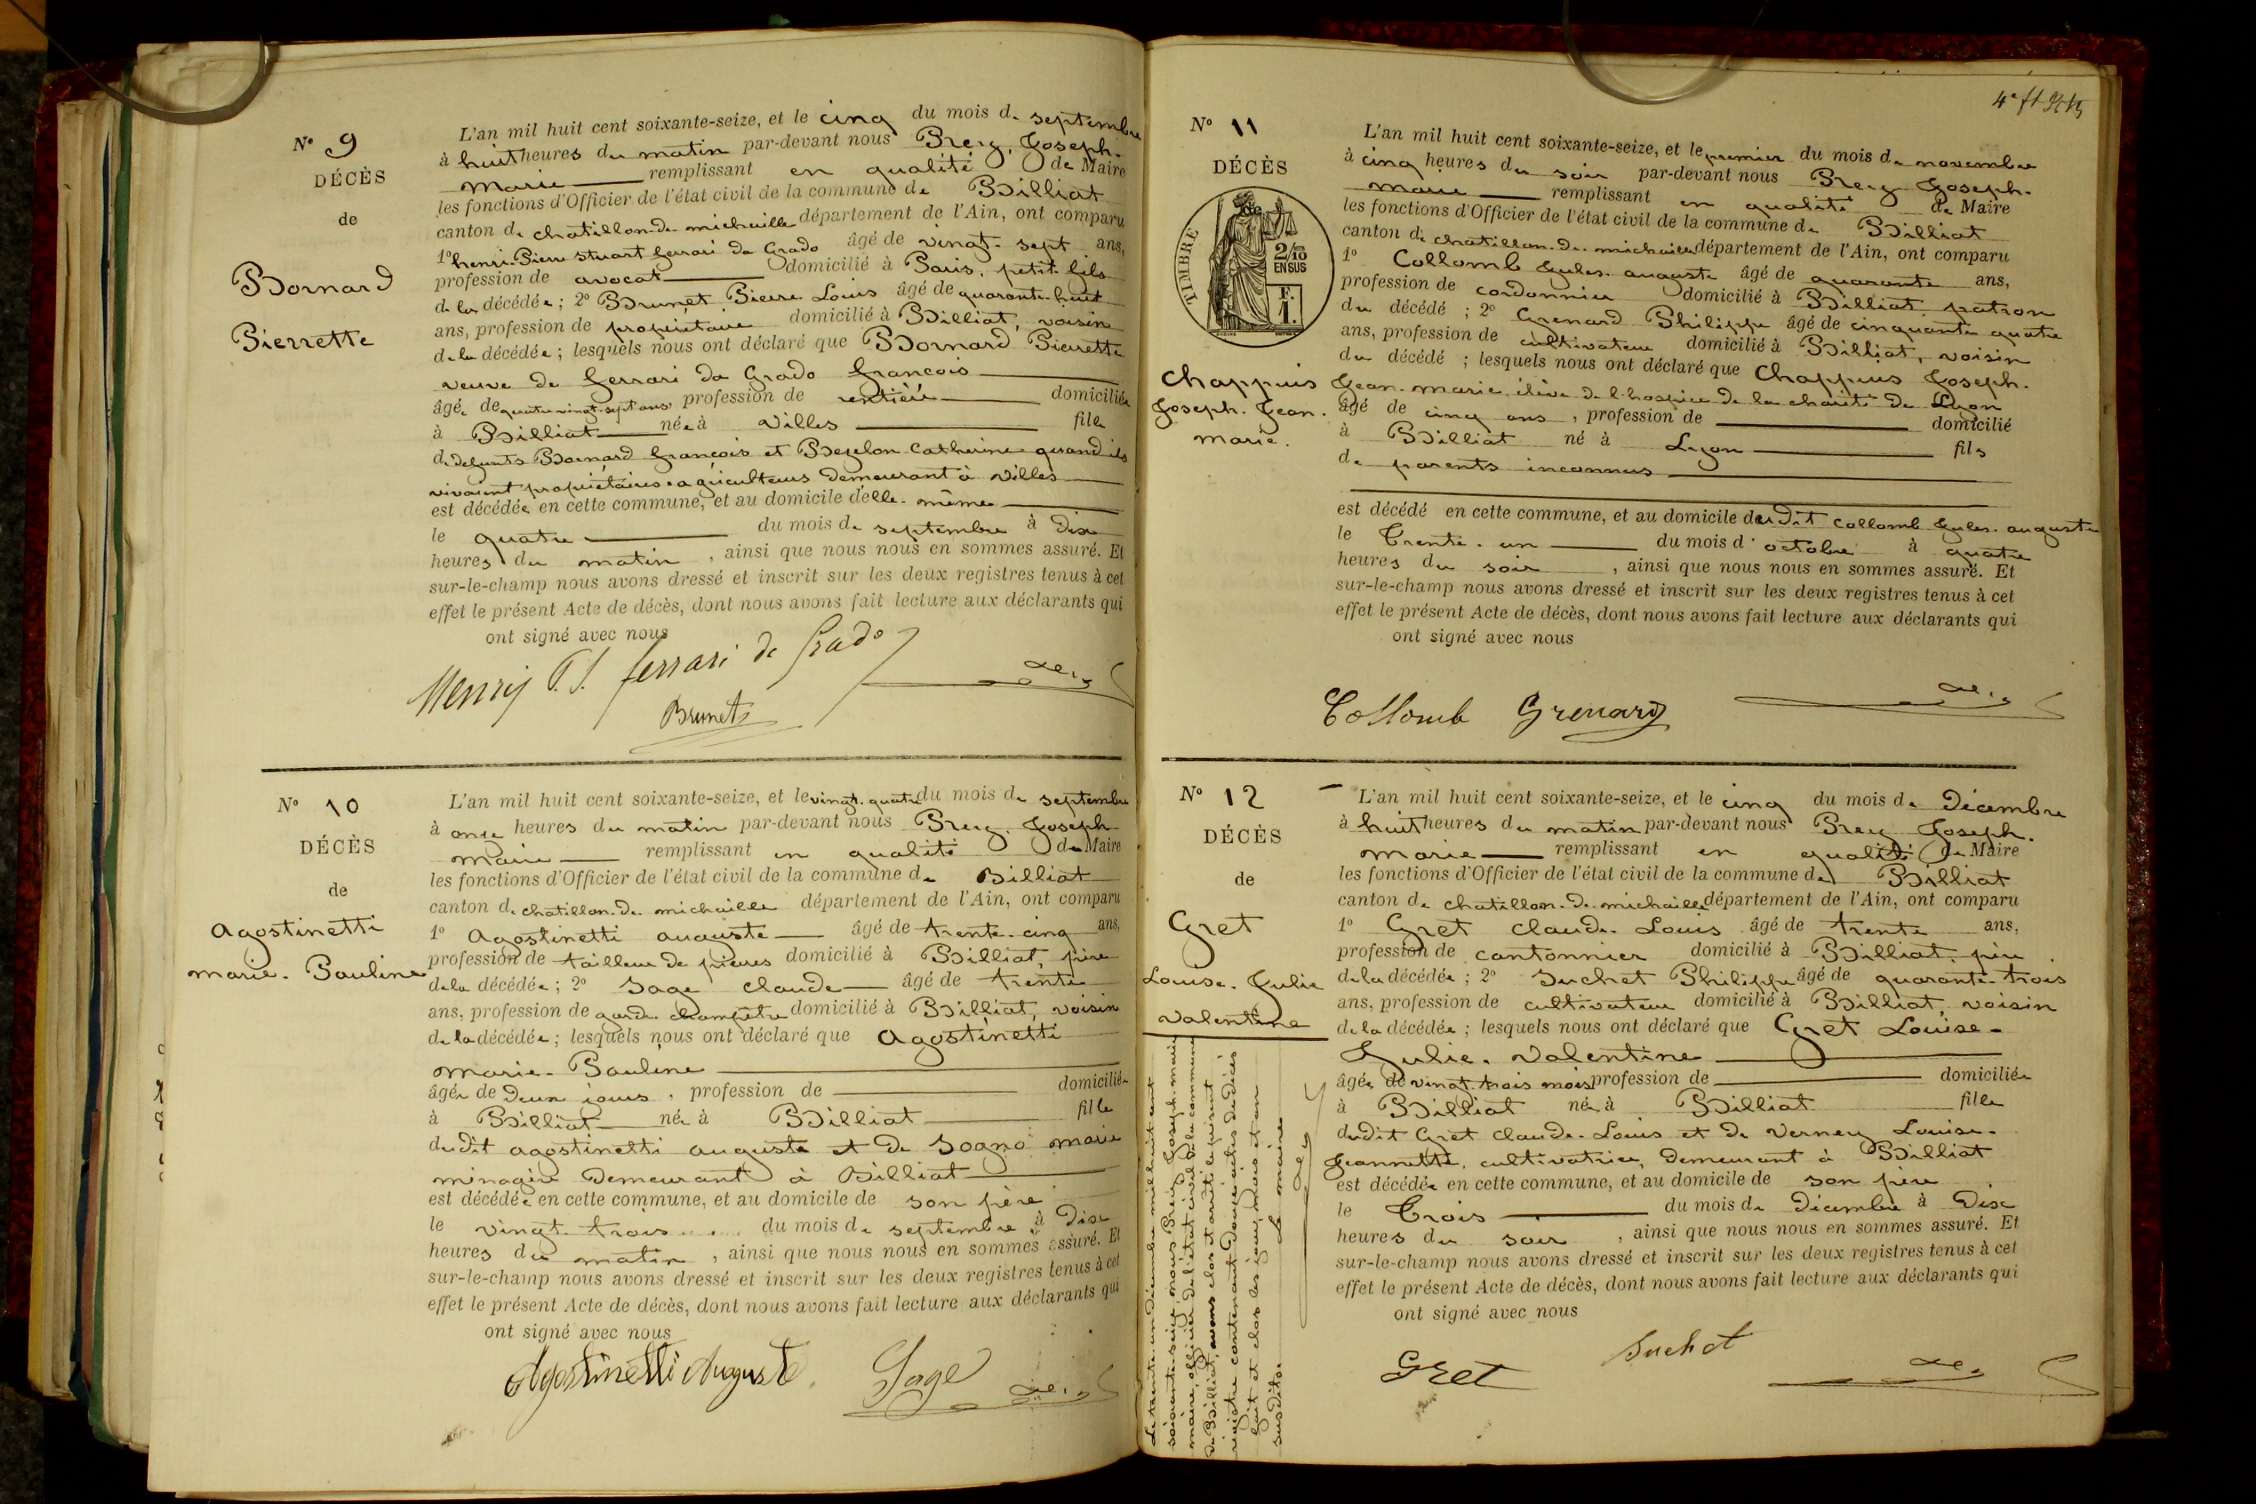 N° 9
DÉCÈS
de
Bornard
Pierrette
L'an mil huit cent soixante-seize, et le cinq du mois de septembre
à huit heures du matin par-devant nous Brey, Joseph-
marie remplissant en qualité de Maire
les fonctions d'Officier de l'état civil de la commune de Billiat
canton de chatillon-de-michaille département de l'Ain, ont comparu
1° henri-Pierre stuart ferrari da Grado âgé de vingt-sept ans,
profession de avocat domicilié à Paris, petit-fils
de la décédée; 2° Brunet Pierre Louis âgé de quarante-huit
ans, profession de propriétaire domicilié à Billiat, voisin
de la décédée; lesquels nous ont déclaré que Bornard Pierrette
veuve de ferrari da Grado françois
âgée de quatre vingt-sept ans, profession de rentière domiciliée
à Billiat née à Villes fille
de defunts Bornard françois et Catherine quand ils
vivaient propriétaires-agriculteurs demeurant à Villes
est décédée en cette commune, et au domicile d'elle-même
le quatre du mois de septembre à Dix
heures du matin, ainsi que nous nous en sommes assuré. Et
sur-le-champ nous avons dressé et inscrit sur les deux registres tenus à cet
effet le présent Acte de décès, dont nous avons fait lecture aux déclarants qui
ont signé avec nous
Henry P. S. ferrari de Grado
Brunet
N° 10
DÉCÈS
de
agostinetti
marie-Pauline
L'an mil huit cent soixante-seize, et le vingt-quatre du mois de septembre
à onze heures du matin par-devant nous Brey, Joseph
marie remplissant en qualité de Maire
les fonctions d'Officier de l'état civil de la commune de Billiat
canton de chatillon-de-michaille département de l'Ain, ont comparu
1° agostinetti auguste âgé de trente-cinq ans,
profession de tailleur de pierres domicilié à Billiat, père
de la décédée; 2° Sage claude âgé de trente
ans, profession de garde champêtre domicilié à Billiat, voisin
de la décédée; lesquels nous ont déclaré que agostinetti
marie-Pauline
âgée de Deux jours, profession de domiciliée
à Billiat née à Billiat fille
dudit agostinetti auguste et de Sogno marie
ménagère demeurant à Billiat
est décédée en cette commune, et au domicile de son père
le vingt-trois du mois de septembre à Dix
heures du matin, ainsi que nous nous en sommes assuré. Et
sur-le-champ nous avons dressé et inscrit sur les deux registres tenus à cet
effet le présent Acte de décès, dont nous avons fait lecture aux déclarants qui
ont signé avec nous
Agostinetti Auguste Sage
N° 11
DÉCÈS
de
TIMBRE
2/10
EN SUS
chappuis
Joseph-Jean-
marie.
L'an mil huit cent soixante-seize, et le premier du mois de novembre
à cinq heures du soir par-devant nous Brey Joseph-
marie remplissant en qualité de Maire
les fonctions d'Officier de l'état civil de la commune de Billiat
canton de chatillon-de-michaille département de l'Ain, ont comparu
1° Collomb Jules-auguste âgé de quarante ans,
profession de cordonnier domicilié à Billiat, patron
du décédé; 2° Grenard Philippe âgé de cinquante quatre
ans, profession de cultivateur domicilié à Billiat, voisin
du décédé; lesquels nous ont déclaré que Chappuis Joseph-
Jean-marie, élève de l'hospice de la charité de Lyon
âgé de cinq ans, profession de domicilié
à Billiat né à Lyon fils
de parents inconnus
est décédé en cette commune, et au domicile dudit collomb Jules-auguste
le Trente-un du mois d'octobre à quatre
heures du soir, ainsi que nous nous en sommes assuré. Et
sur-le-champ nous avons dressé et inscrit sur les deux registres tenus à cet
effet le présent Acte de décès, dont nous avons fait lecture aux déclarants qui
ont signé avec nous
Collomb Grenard
N° 12
DÉCÈS
de
Gret
Louise-Julie
valentine
L'an mil huit cent soixante-seize, et le cinq du mois de Décembre
à huit heures du matin par-devant nous Brey Joseph-
marie remplissant en qualité de Maire
les fonctions d'Officier de l'état civil de la commune de Billiat
canton de chatillon-de-michaille département de l'Ain, ont comparu
1° Gret claude-Louis âgé de trente ans,
profession de cantonnier domicilié à Billiat, père
de la décédée; 2° Suchet Philippe âgé de quarante-trois
ans, profession de cultivateur domicilié à Billiat, voisin
de la décédée; lesquels nous ont déclaré que Gret Louise-
Julie-Valentine
âgée de vingt-trois mois, profession de domiciliée
à Billiat née à Billiat fille
dudit Gret claude-Louis et de Verney Louise-
Jeannette, cultivatrice, demeurant à Billiat
est décédée en cette commune, et au domicile de son père
le Trois du mois de Décembre à Dix
heures du soir, ainsi que nous nous en sommes assuré. Et
sur-le-champ nous avons dressé et inscrit sur les deux registres tenus à cet
effet le présent Acte de décès, dont nous avons fait lecture aux déclarants qui
ont signé avec nous
Gret Suchet
Le trente-un Décembre mil huit cent
soixante-seize, nous Brey Joseph-marie
maire, officier de l'état civil de la commune
de Billiat, avons clos et arrêté le présent
registre contenant Douze actes de Décès
fait et clos les jour, mois et an
susdits. Le maire